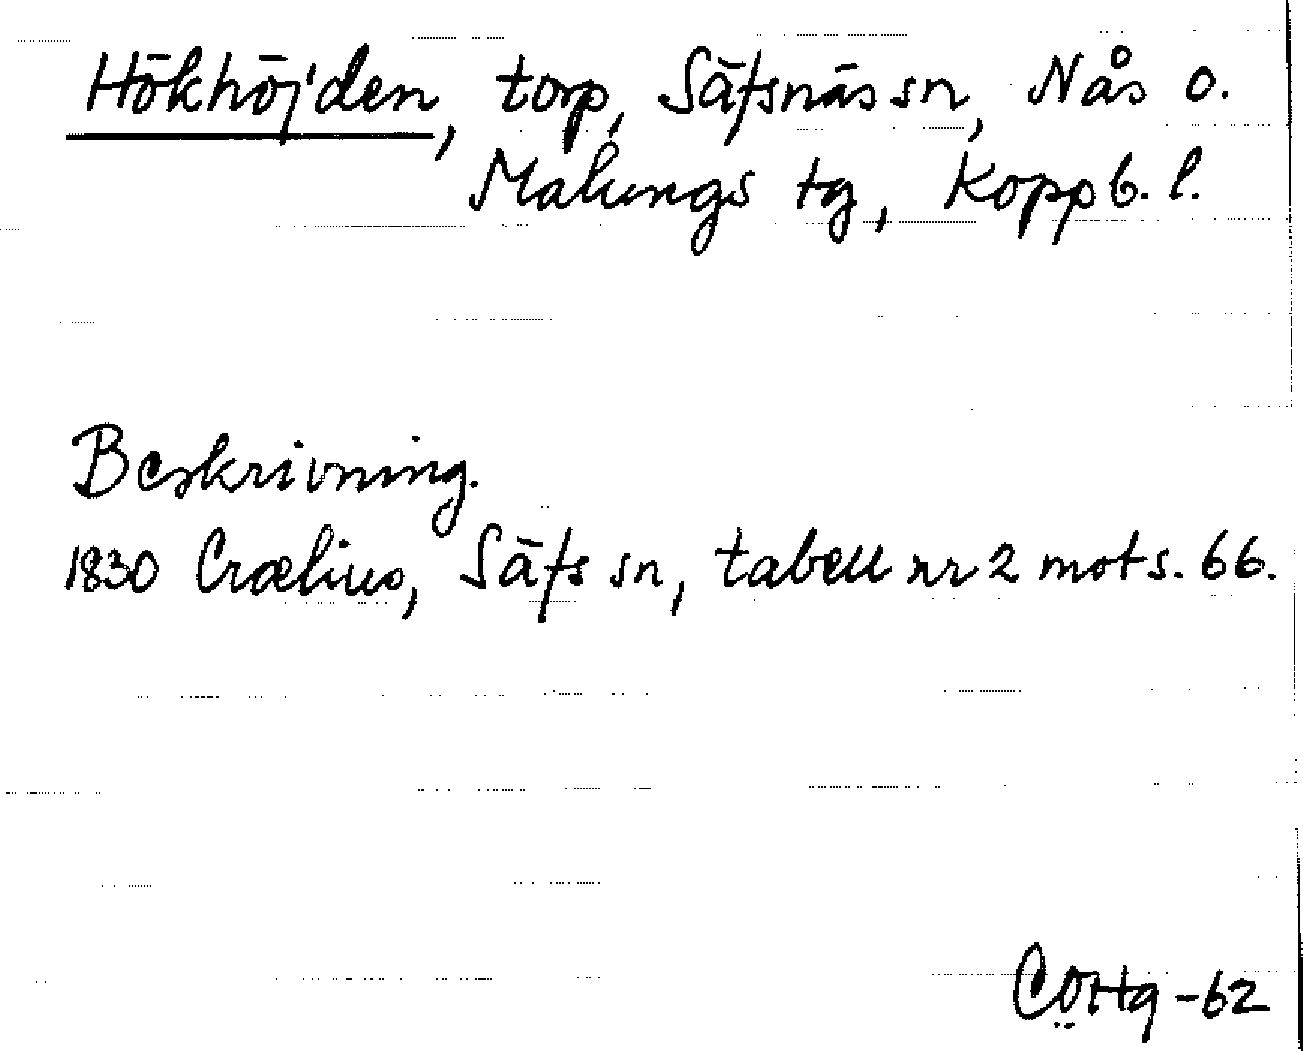 Hökhöjden, torp, Säfsnäs sn, Nås o.
Malungs tg, Koppb. l.
Beskrivning.
1830 Crælius, Säfs sn, tabell nr 2 mot s. 66.
-62